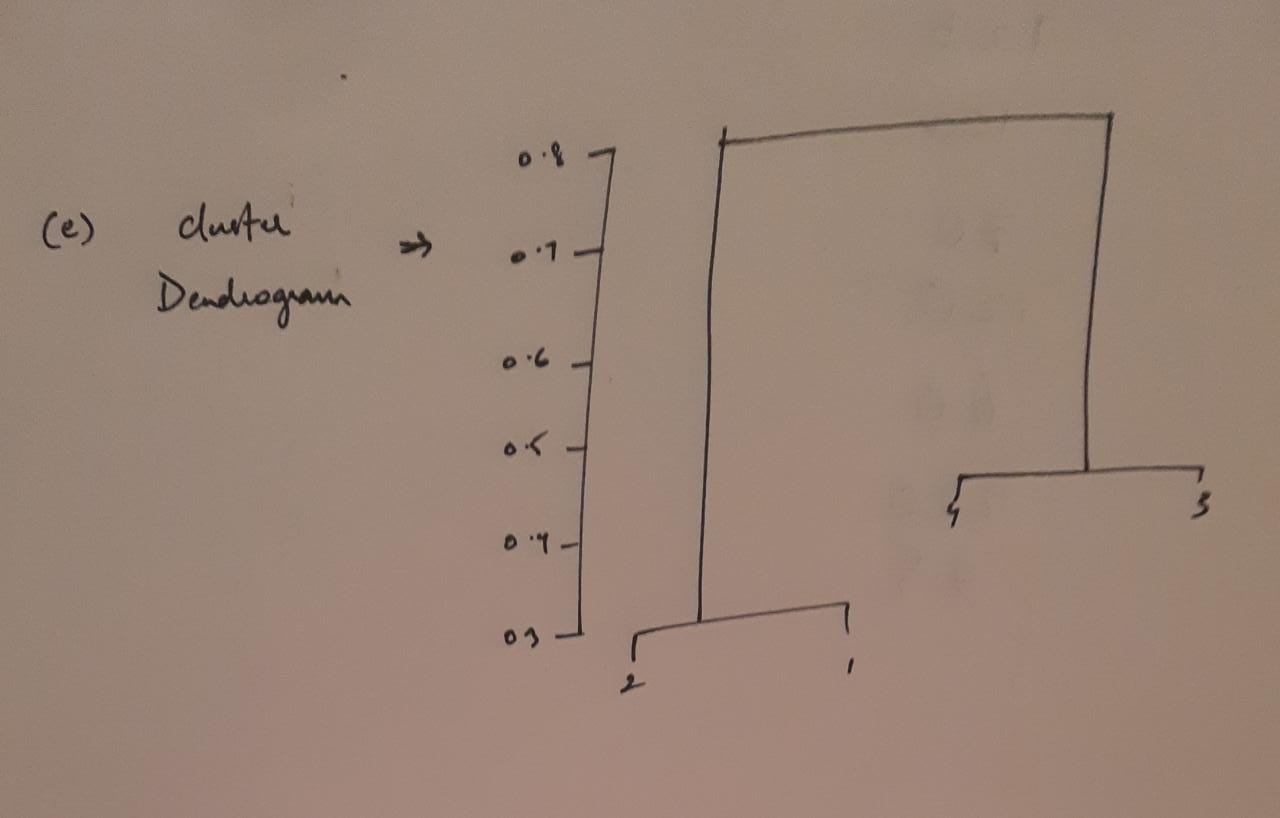 (e) cluster
Dendrogram
⇒
0.8
0.7
0.6
0.5
0.4
0.3
4 3
2 1